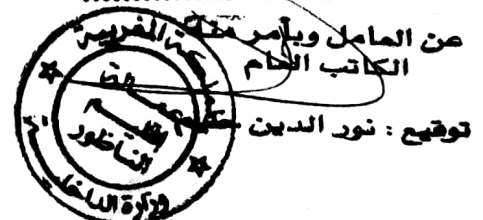 عن العامل وبأمر منه
الكاتب العام
توقيع : نور الدين
المملكة المغربية
عمالة
إقليم
الناظور
وزارة الداخلية